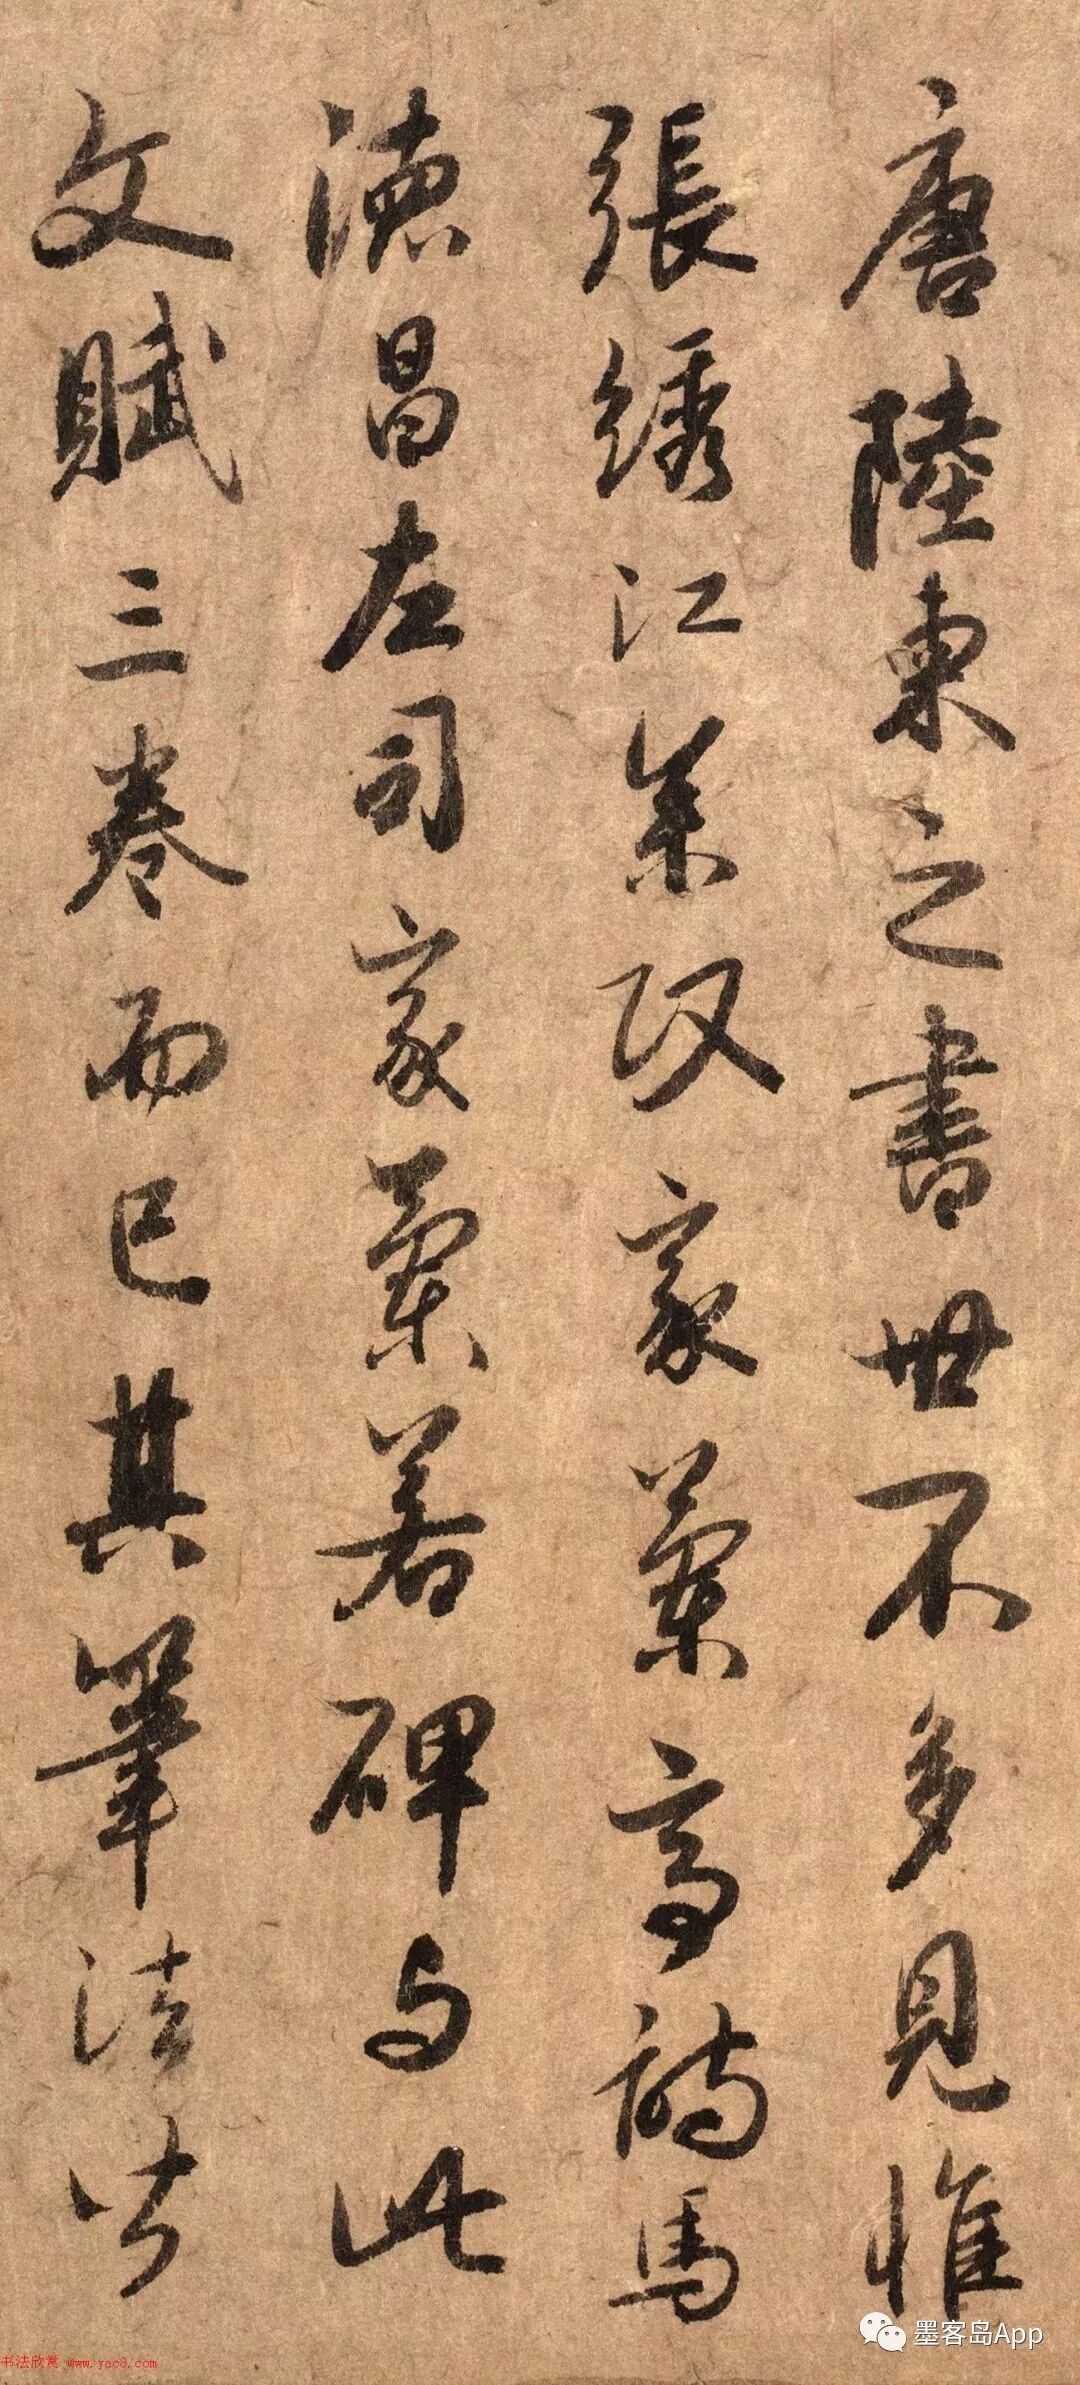 唐陸柬之書世不多見惟
張綉江叅政家蘭亭詩馬
德昌左司家蘭若碑与此
文賦三卷而已其筆法皆
墨客岛App
书法欣赏 www.yac8.com